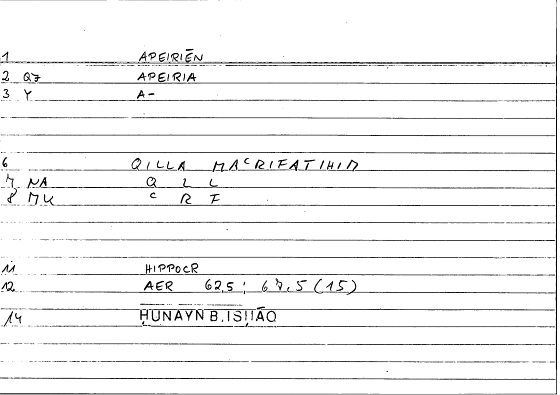 1 APEIRIĒN
2 QZ APEIRIA
3 Y A-
6 QILLA MAᶜRIFATIHIM
7 NA Q L L
8 MU ᶜ R F
11 HIPPOCR
12 AER 62,5; 67,5 (15)
14 ḤUNAYN B. ISḤĀQ